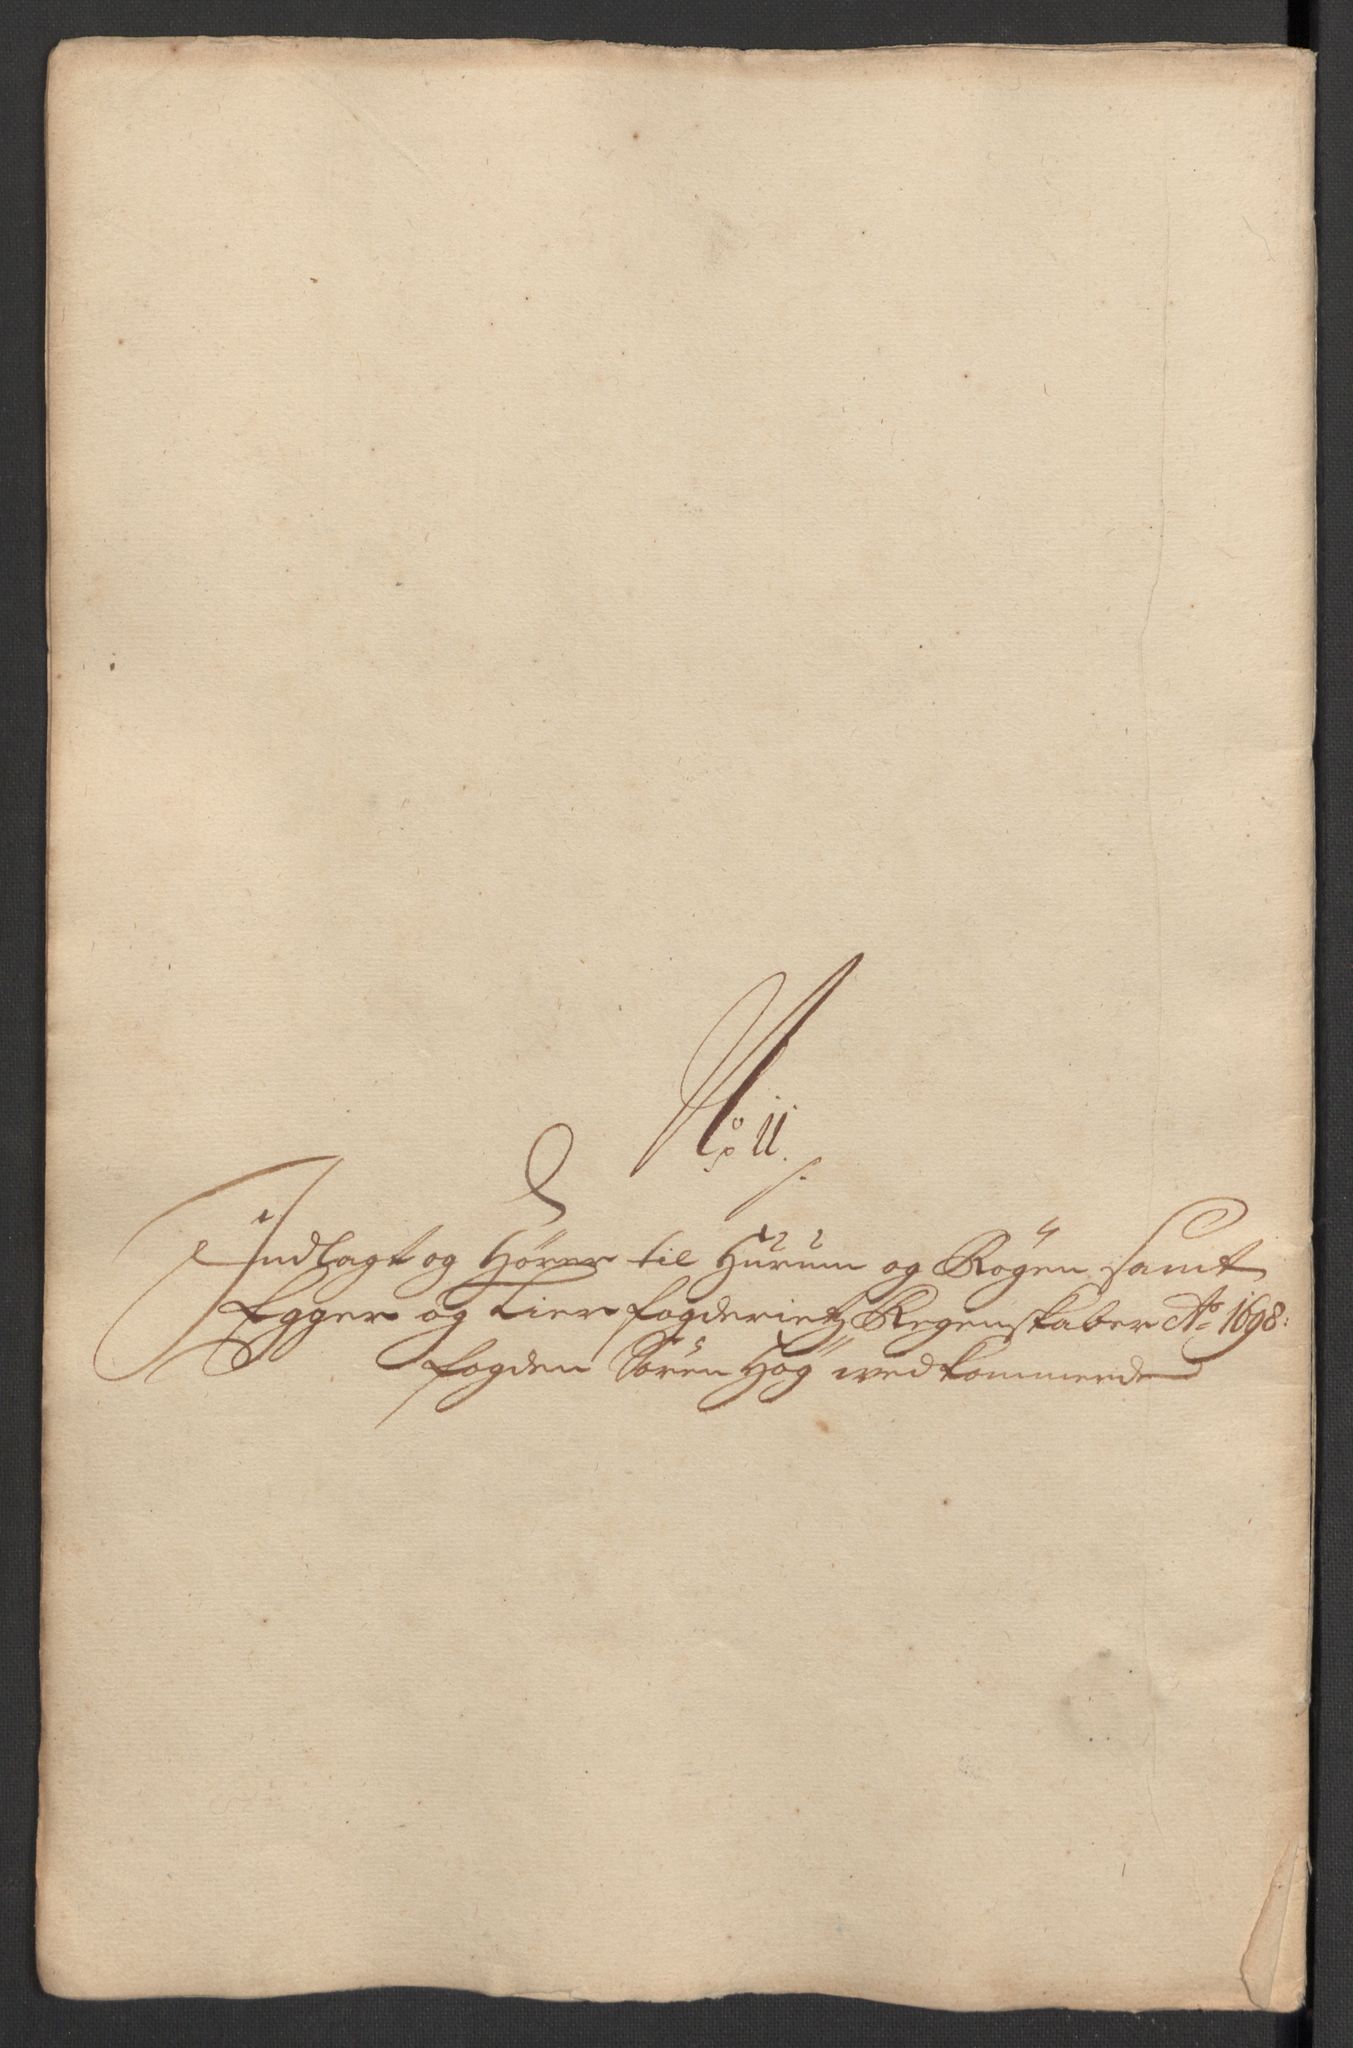 No 11.
Indlagt og Hører til Hurum og Røgen samt
Egger og Lier fogderietz Regenskaber Ao 1698:
fogden Søren Høg vedkommende